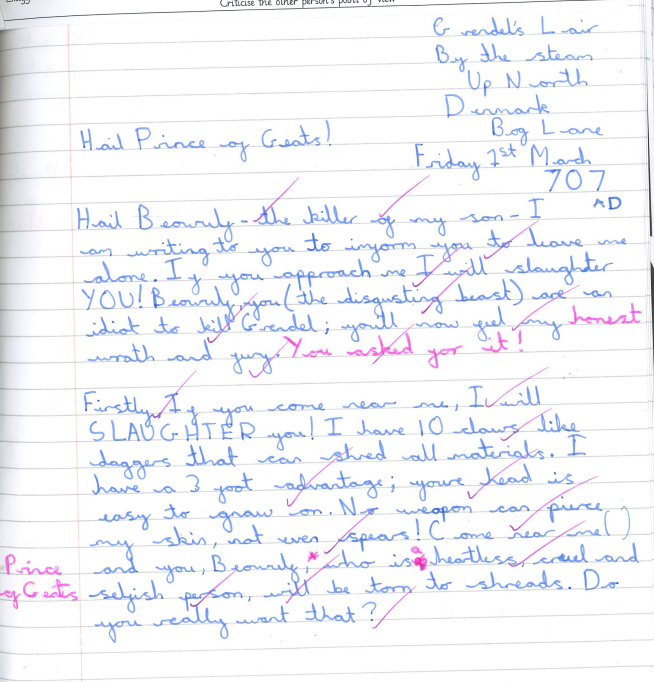 Criticise the other person's point of view
Grendel's Lair
By the steam
Up North
Denmark
Bog Lane
Hail Prince of Geats!
Friday 1st March
707
AD
Hail Beowulf - the killer of my son - I
am writing to you to inform you to leave me
alone. If you approach me I will slaughter
YOU! Beowulf, you (the disgusting beast) are an
idiot to kill Grendel; you'll now feel my honest
wrath and fury. You asked for it!
Firstly, If you come near me, I will
SLAUGHTER you! I have 10 claws like
daggers that can shred all materials. I
have a 3 foot advantage; youre head is
easy to gnaw on. No weapon can pierce
my skin, not even spears! Come near me()
Prince and you, Beowulf, * who is a heartless, cruel and
of Geats selfish person, will be torn to shreads. Do
you really want that?